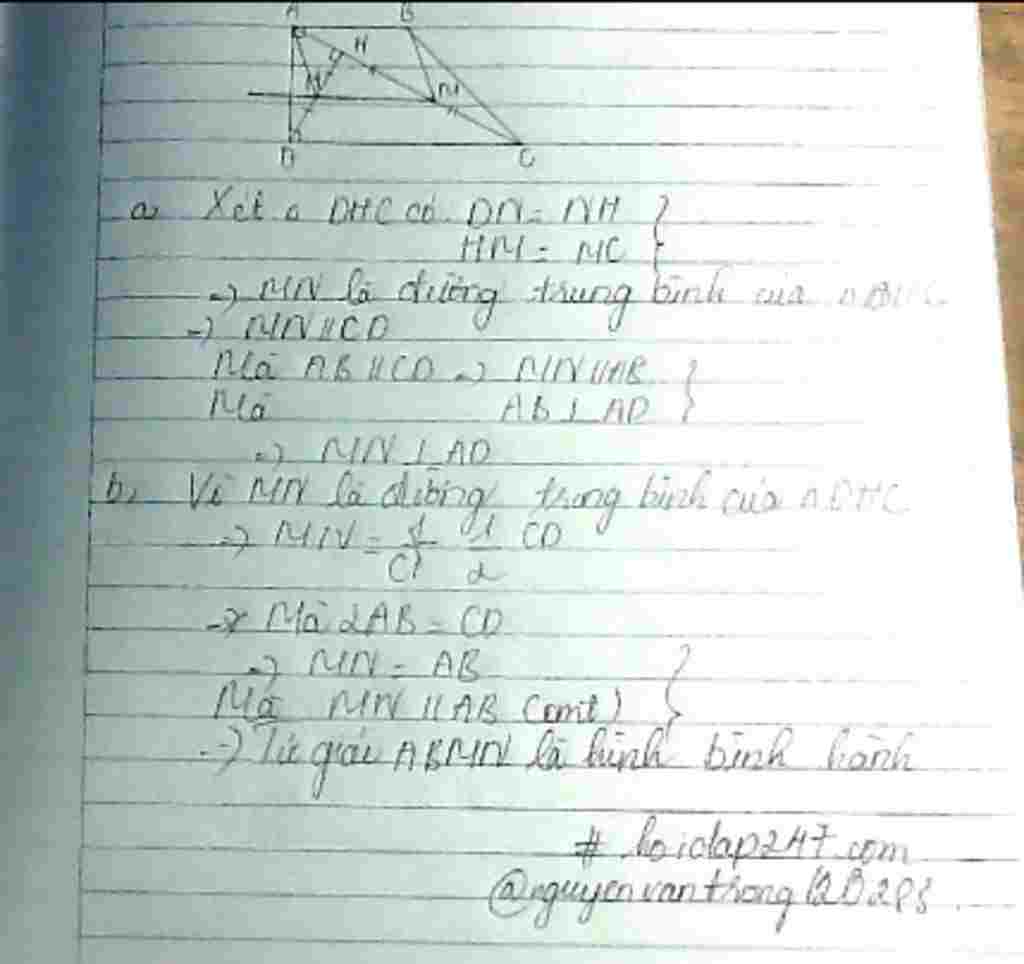 A B
H
N M
D C
a, Xét Δ DHC có DN = NH }
HM = MC
=) MN là đường trung bình của Δ DHC
=) MN // CD
Mà AB // CD => MN // AB }
Mà AB ⊥ AD
=) MN ⊥ AD
b, Vì MN là đường trung bình của Δ DHC
=) MN = 1/2 CD
Mà 2AB = CD
=) MN = AB }
Mà MN // AB (cmt)
=) Tứ giác ABMN là hình bình hành
# hoidap247.com
@nguyenvantrong